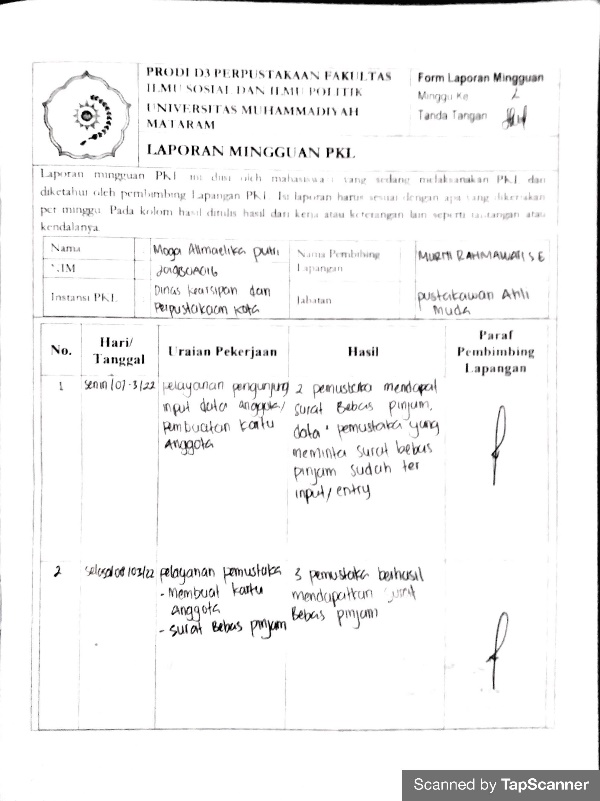 PRODI D3 PERPUSTAKAAN FAKULTAS
ILMU SOSIAL DAN ILMU POLITIK
UNIVERSITAS MUHAMMADIYAH
MATARAM
LAPORAN MINGGUAN PKL
Form Laporan Mingguan
Minggu Ke 2
Tanda Tangan
Laporan mingguan PKL ini diisi oleh mahasiswa yang sedang melaksanakan PKL dan
diketahui oleh pembimbing Lapangan PKL. Isi laporan harus sesuai dengan apa yang dikerjakan
per minggu. Pada kolom hasil ditulis hasil dari kerja atau keterangan lain seperti tantangan atau
kendalanya.
Nama Moga Allmaelika putri
NIM
Nama Pembibing
Lapangan
MURTI RAHMAWATI S E
Instansi PKL Dinas Kearsipan dan
Perpustakaan Kota
Jabatan pustakawan Ahli
Muda
No.
Hari/
Tanggal
Uraian Pekerjaan
Hasil
Paraf
Pembimbing
Lapangan
1
Senin /07-3/22
pelayanan pengunjung
input data anggota/
pembuatan kartu
Anggota
2 pemustaka mendapat
surat Bebas pinjam,
data" pemustaka yang
meminta surat bebas
pinjam sudah ter
input/entry
2
selasa/08/03/22
pelayanan pemustaka
- membuat kartu
anggota
- surat Bebas pinjam
3 pemustaka berhasil
mendapatkan surat
Bebas pinjam
Scanned by TapScanner